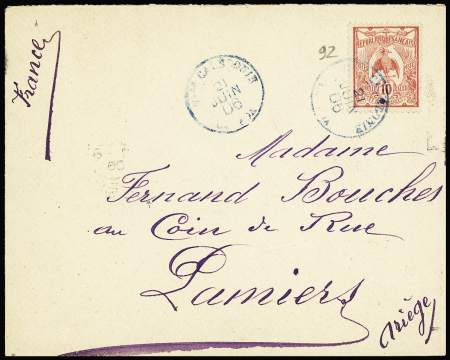 France
92
21
JUIN
06
REPUBLIQUE FRANÇAISE
10
JUIN
06
Madame
Fernand Bouches
au Coin de Rue
Pamiers
Ariège